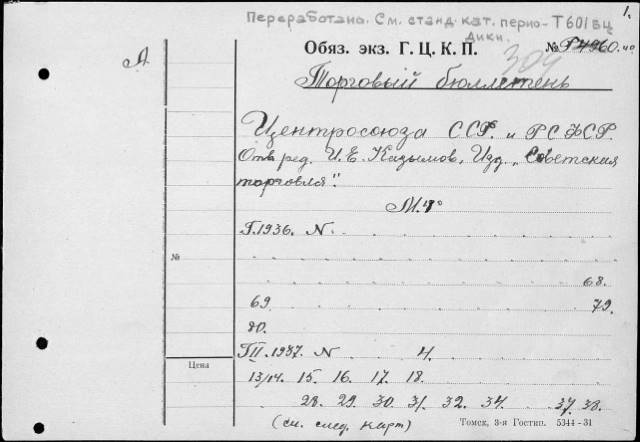 1.
Переработано. См. станд. кат. перио- Т601 вц
дики.
Обяз. экз. Г. Ц. К. П.
№ Р4960. 4°
304
Торговый бюллетень
Центросоюза ССР. и РСФСР.
Отв. ред. И. Е. Казымов, Изд. "Советская
торговля".
М. 4°
I. 1936. N
№
68.
69 79.
80.
II. 1937. N 4.
Цена
13/14. 15. 16. 17. 18.
28. 29. 30. 31. 32. 34 37. 38.
(см. след. карт)
Томск, 3-я Гостип. 5344-31